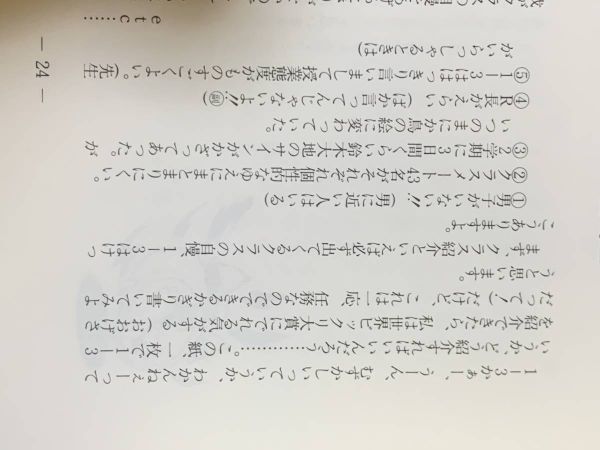 1―3かぁー、うーん、むずかしいっていうか、わかんねぇーって
いうか、どう紹介すればいいんだろう?…………。この紙、一枚で1―3
を紹介できたら、私は世界ビックリ大賞にでれる気がする(おおげさ
だって!)だけど、これは一応、任務なのでできるかぎり書いてみよ
うと思います。
まず、クラス紹介といえば必ず出てくるクラスの自慢、1―3はけっ
こうありますよ。
①男子がいない!!(男に近い人はいる)
②クラスメート43名がそれぞれ個性的なゆえにまとまりにくい。
③2学期に3日間くらい鈴木大地のサインがかざってあった。が
いつのまにか鳥の絵に変わっていた。
④R長がえらい(ばか言ってんじゃないよ!!副)
⑤1―3ははっきり言いまして授業態度がものすごくよい。(先生
がいらっしゃるときは)
etc……
― 24 ―